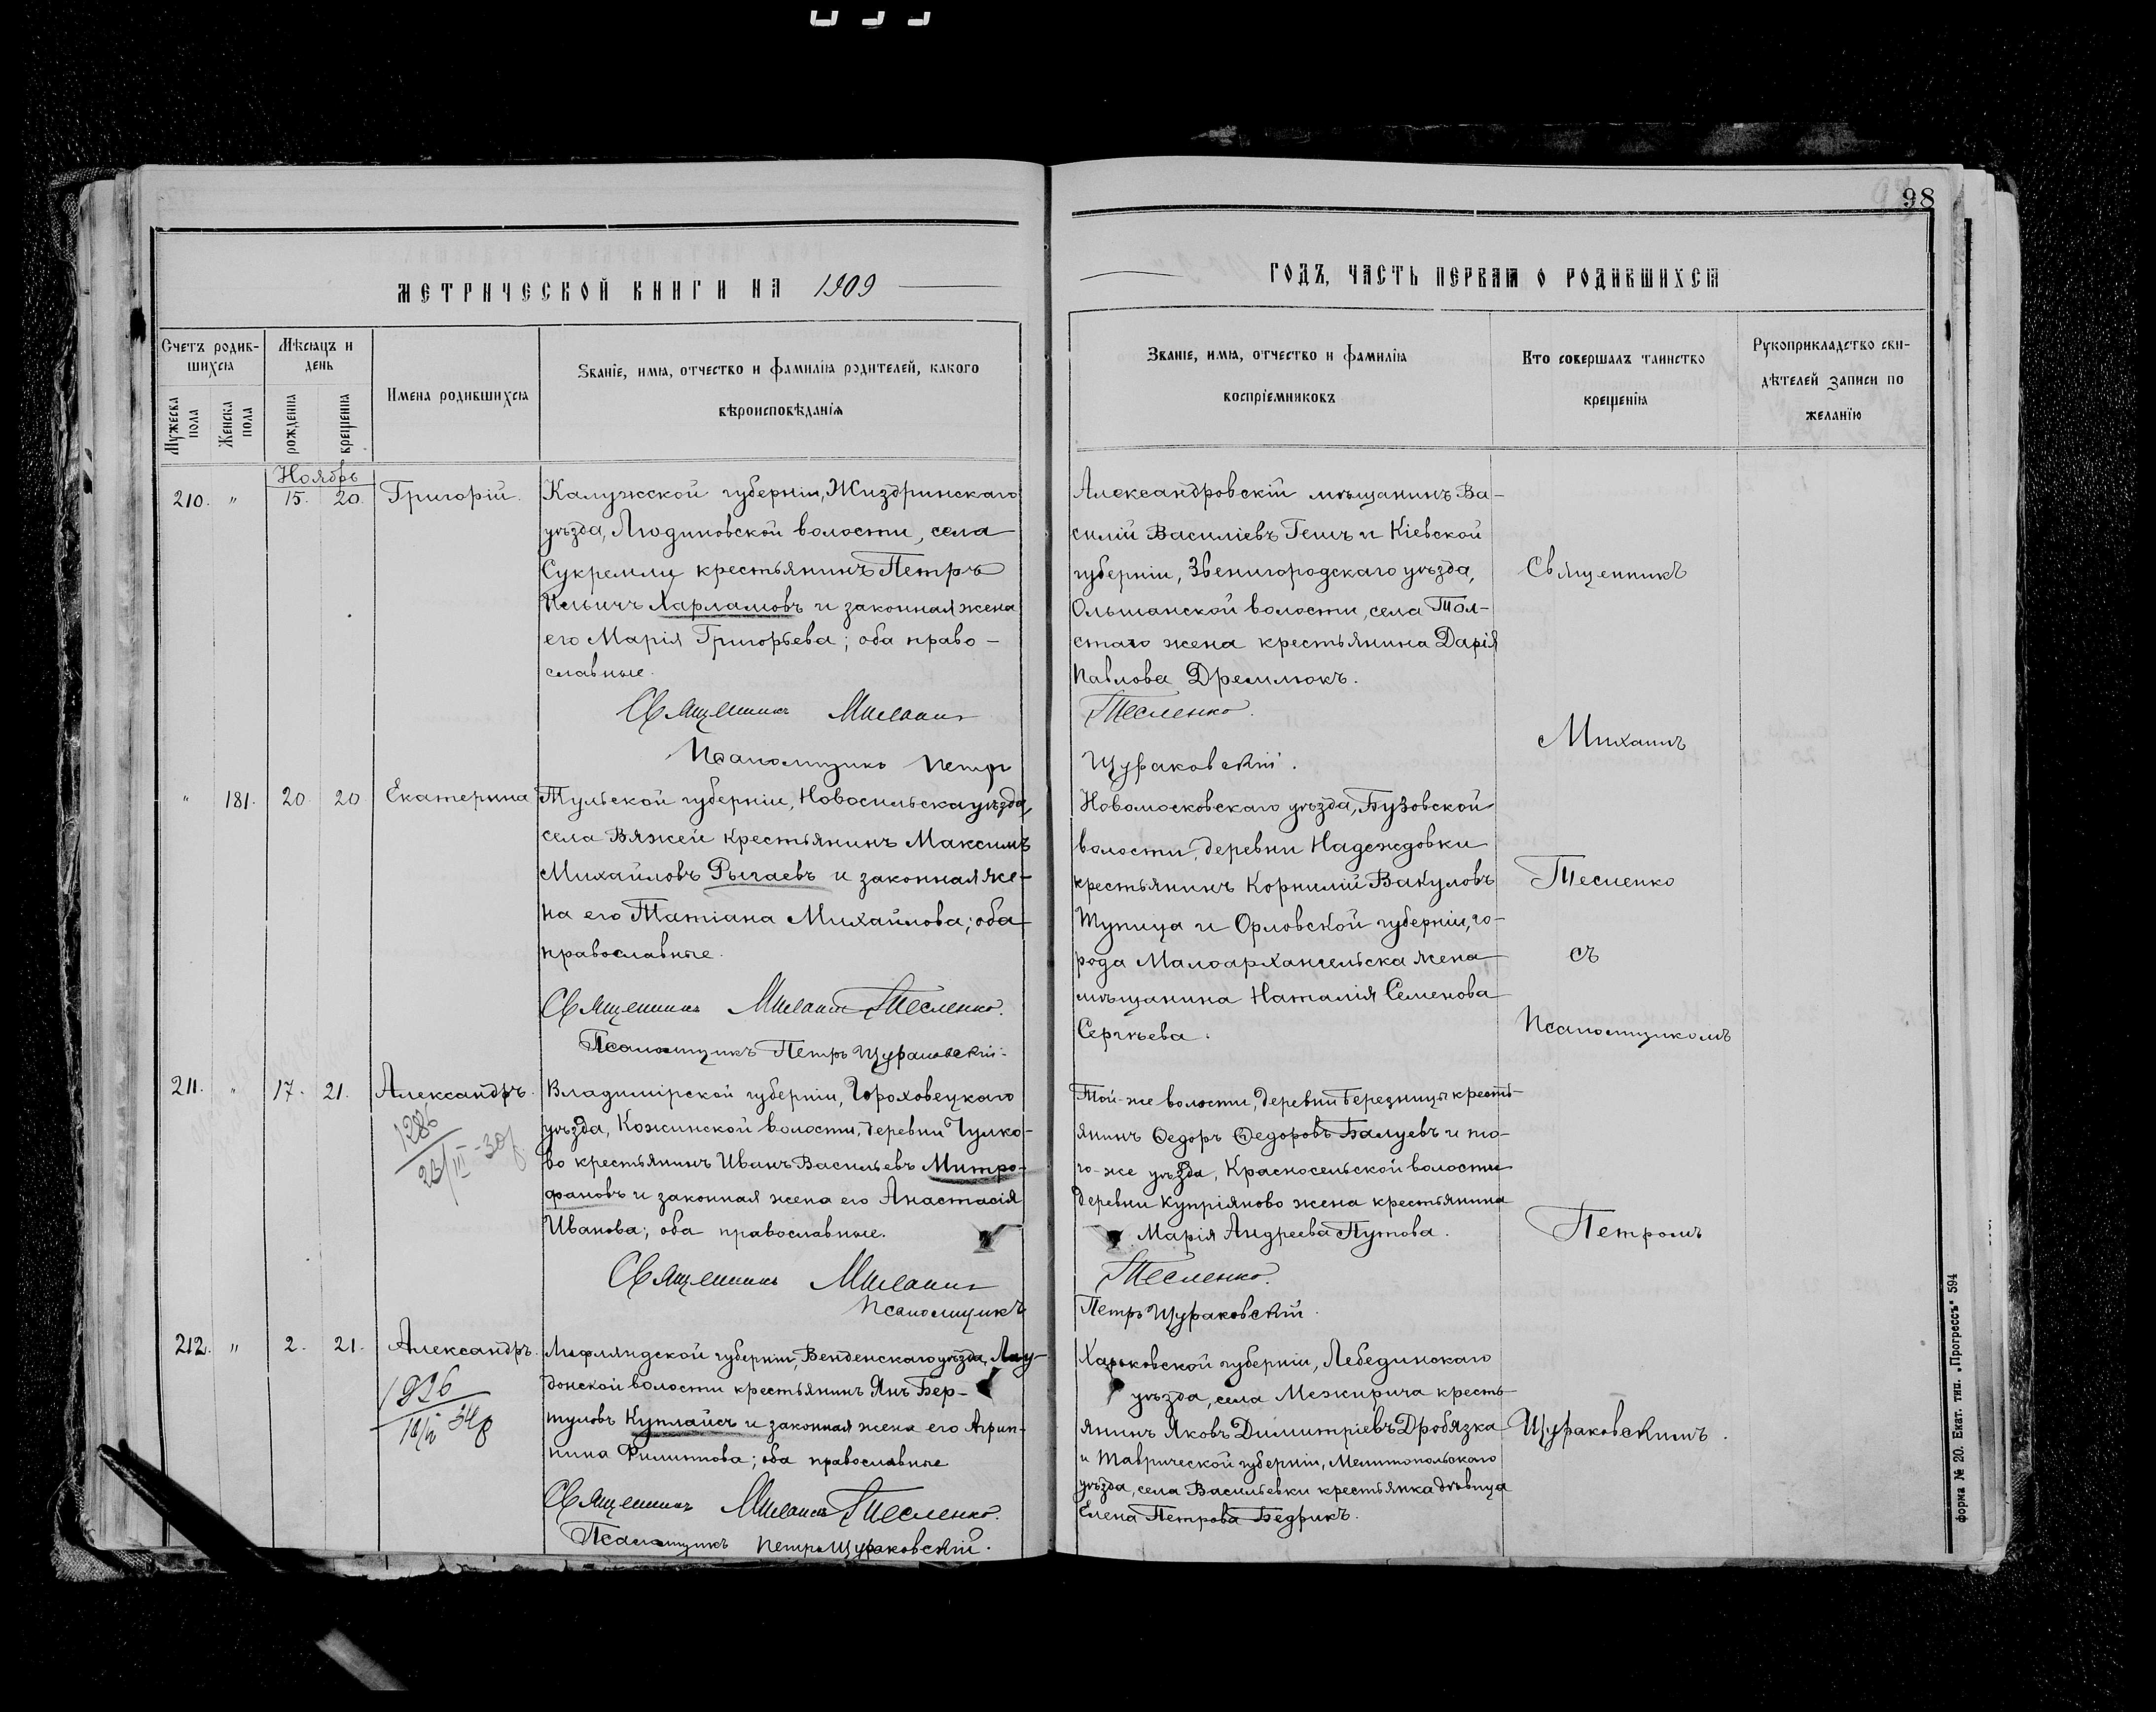 98
МЕТРИЧЕСКОЙ КНИГИ НА 1909
ГОДЪ, ЧАСТЬ ПЕРВАЯ О РОДИВШИХСЯ
Счетъ родив-
шихся
Мужеска пола
Женска пола
Мѣсяцъ и
день
рожденія
крещенія
Имена родившихся
Званіе, имя, отчество и фамилія родителей, какого
вѣроисповѣданія
Званіе, имя, отчество и фамилія
воспріемниковъ
Кто совершалъ таинство
крещенія
Рукоприкладство сви-
дѣтелей записи по
желанію
Ноябрь
210. " 15. 20. Григорій.
Калужской губерніи, Жиздринскаго
уѣзда, Людиновской волости, села
Сукремли крестьянинъ Петръ
Ильичъ Харламовъ и законная жена
его Марія Григорьева; оба право-
славные.
Священникъ Михаилъ
Псаломщикъ Петръ
Александровскій мѣщанинъ Ва-
силій Василіевъ Гешъ и Кіевской
губерніи, Звенигородскаго уѣзда,
Ольшанской волости, села Тол-
стаго жена крестьянина Дарія
Павлова Дремлюкъ.
Тесленко.
Щураковскій.
" 181. 20. 20 Екатерина
Тульской губерніи, Новосильска уѣзда,
села Вяжей крестьянинъ Максимъ
Михайловъ Рыгаевъ и законная же-
на его Татіана Михайлова; оба
православные.
Священникъ Михаилъ Тесленко.
Псаломщикъ Петръ Щураковскій.
Новомосковскаго уѣзда, Бузовской
волости, деревни Надеждовки
крестьянинъ Корнилій Вакуловъ
Тупица и Орловской губерніи, го-
рода Малоархангельска жена
мѣщанина Наталія Семенова
Сергѣева.
211. " 17. 21. Александръ.
1286
23/III-30
Владимірской губерніи, Гороховецкаго
уѣзда, Кожинской волости, деревни Чулко-
во крестьянинъ Иванъ Васильевъ Митро-
фановъ и законная жена его Анастасія
Иванова; оба православные.
Священникъ Михаилъ
Псаломщикъ
Той-же волости, деревни Березницы кресть-
янинъ Ѳедоръ Ѳедоровъ Балуевъ и то-
го-же уѣзда, Красносельской волости
деревни Купріяново жена крестьянина
Марія Андреева Путова.
Тесленко.
Петръ Щураковскій.
212. " 2. 21. Александръ.
Лифляндской губерніи, Венденскаго уѣзда, Лау-
донской волости крестьянинъ Янъ Бер-
туловъ Куплайсъ и законная жена его Агрип-
пина Филиппова; оба православные
Священникъ Михаилъ Тесленко.
Псаломщикъ Петръ Щураковскій.
Харьковской губерніи, Лебединскаго
уѣзда, села Межирича кресть-
янинъ Яковъ Димитріевъ Дробязка
и Таврической губерніи, Мелитопольскаго
уѣзда, села Васильевки крестьянка дѣвица
Елена Петрова Бедрикъ.
Священникъ
Михаилъ
Тесленко
съ
Псаломщикомъ
Петромъ
Щураковскимъ.
форма № 20. Екат. тип. „Прогрессъ" 594